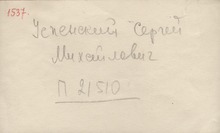 1537.
Успенский Сергей
Михайлович
П 21510